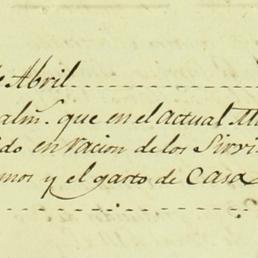 e Abril
alm. que en el actual M
do en racion de los Sirvi
mos y el gasto de Casa